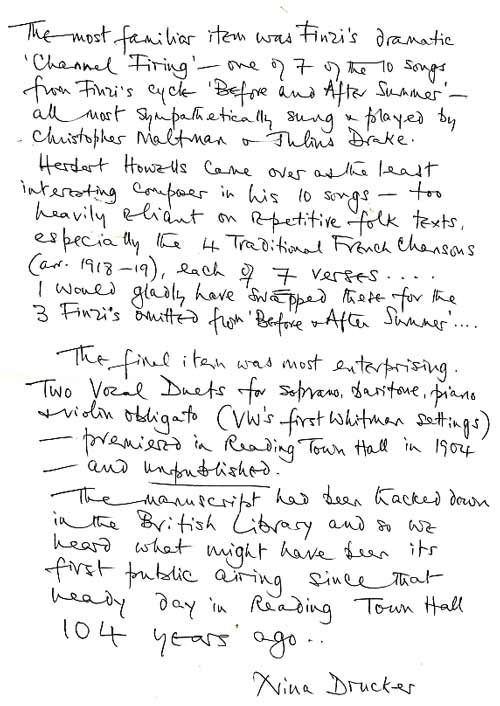 The most familiar item was Finzi's dramatic
'Channel Firing' – one of 7 of the 10 songs
from Finzi's cycle 'Before and After Summer' –
all most sympathetically sung & played by
Christopher Maltman & Julius Drake.
Herbert Howells came over as the least
interesting composer in his 10 songs – too
heavily reliant on repetitive folk texts,
especially the 4 Traditional French Chansons
(arr. 1918–19), each of 7 verses ....
I would gladly have swapped these for the
3 Finzi's omitted from 'Before & After Summer'....
The final item was most enterprising.
Two Vocal Duets for soprano, baritone, piano
& violin obligato (VW's first Whitman settings)
– premiered in Reading Town Hall in 1904
– and unpublished.
The manuscript had been tracked down
in the British Library and so we
heard what might have been its
first public airing since that
heady day in Reading Town Hall
104 years ago..
Xina Drucker